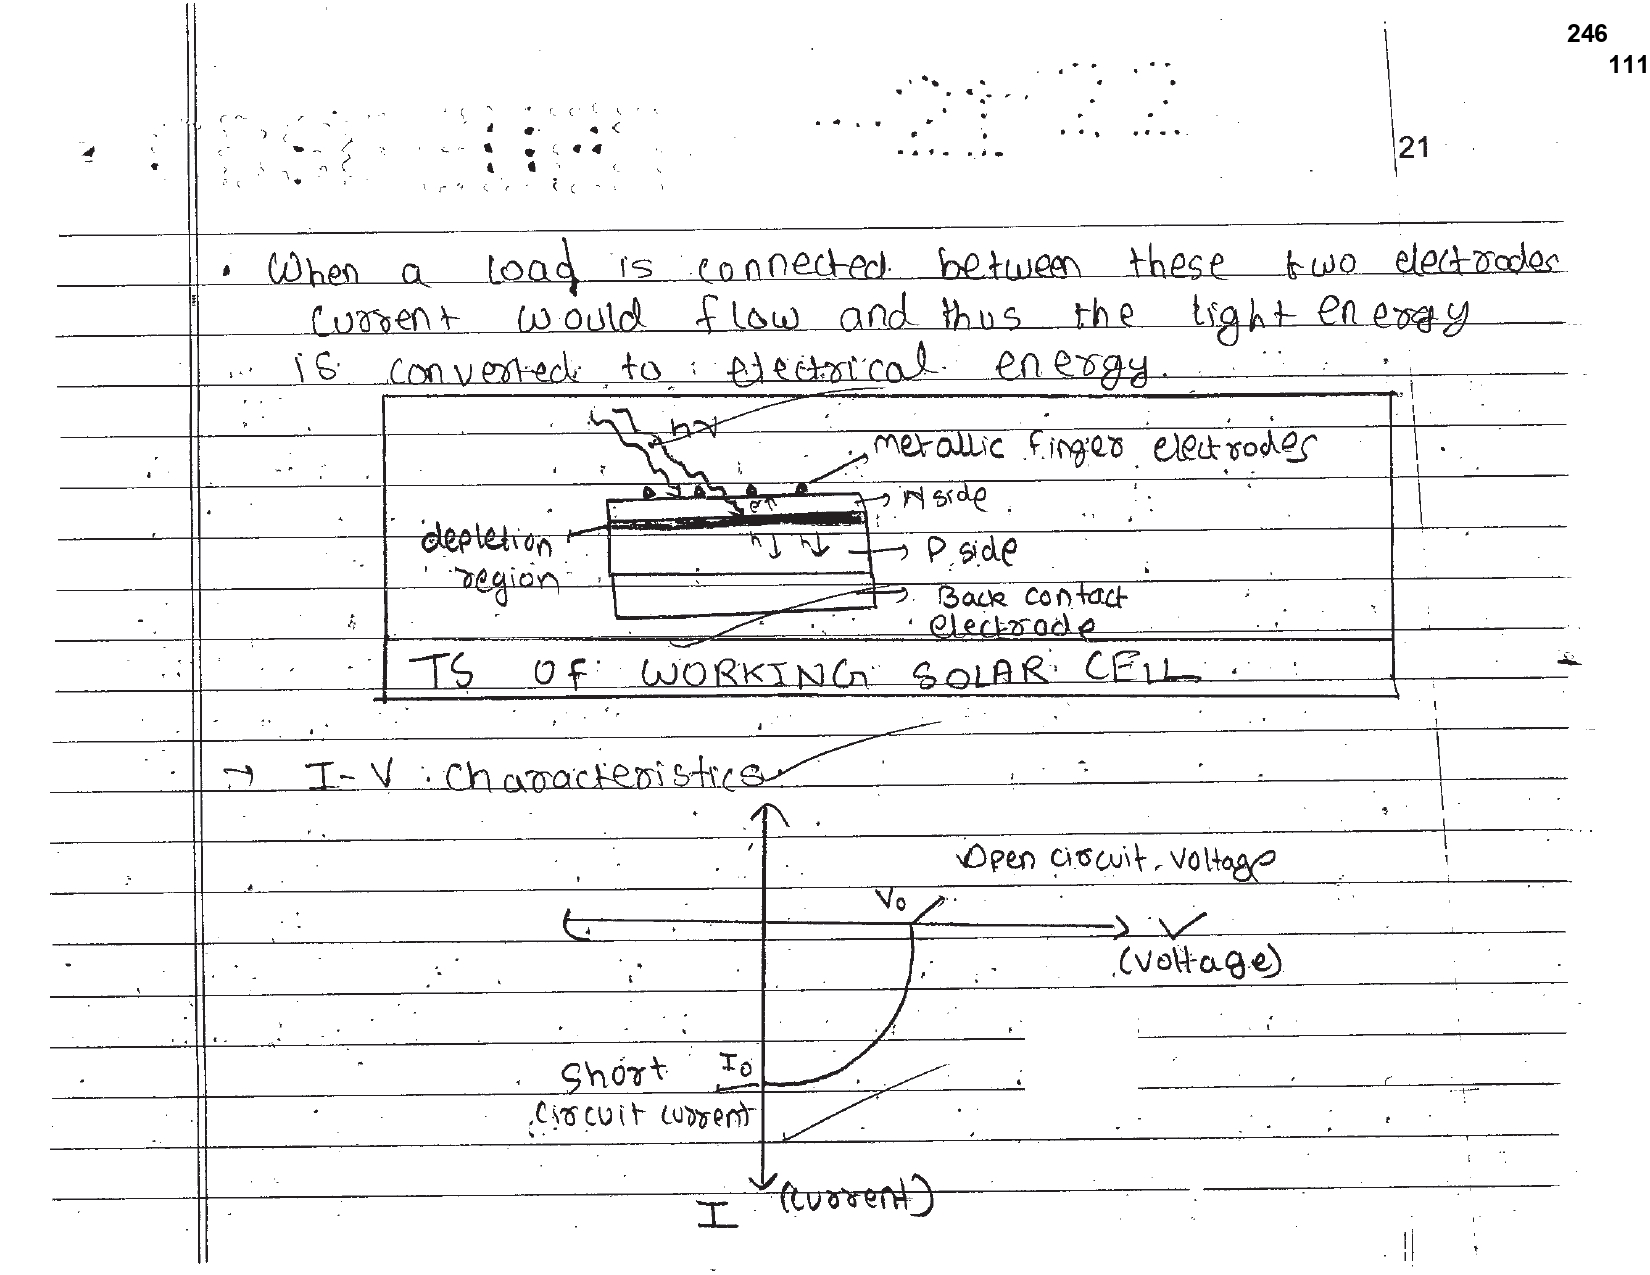 246
111
21
• When a load is connected between these two electrodes
current would flow and thus the light energy
is converted to electrical energy.
hν
metallic finger electrodes
e↑
N side
depletion
region
h↓ h↓
P side
Back contact
electrode
TS OF WORKING SOLAR CELL
→ I-V characteristics
Open circuit voltage
V0
V
(voltage)
Short
circuit current
I0
I
(current)